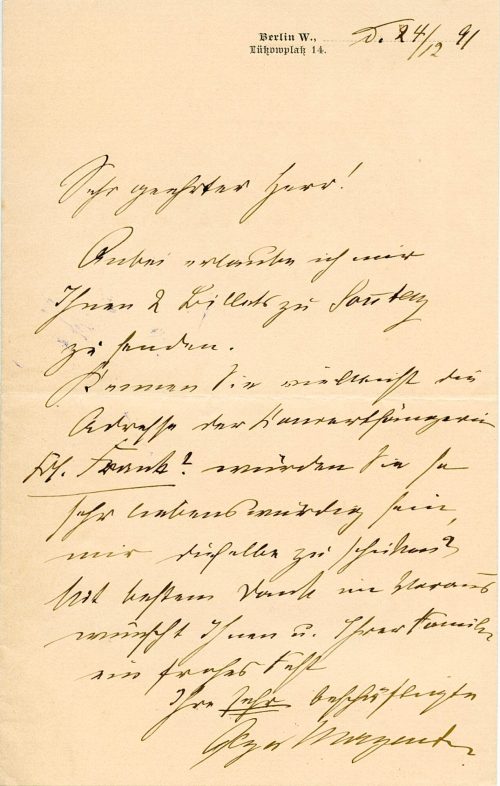 Berlin W.,
Lützowplatz 14.
D. 24/12 91
Sehr geehrter Herr!
Anbei erlaube ich mir
Ihnen 2 Billets zu Sonntag
zu senden.
Kennen Sie vielleicht die
Adresse der Concertsängerin
Frl. Frank? würden Sie so
sehr liebenswürdig sein,
mir dieselbe zu schicken?
Mit bestem Dank im Voraus
wünscht Ihnen u. Ihrer Familie
ein frohes Fest
Ihre sehr beschäftigte